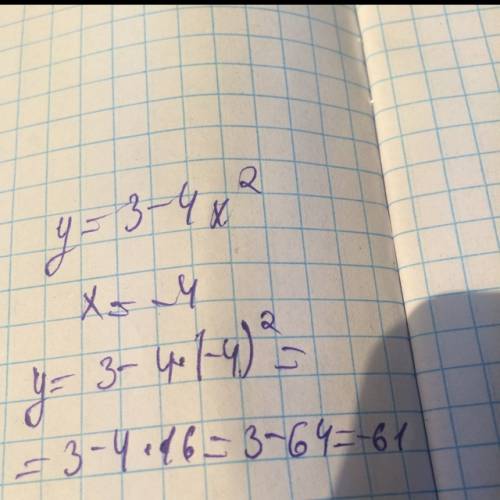 y = 3 - 4x²
x = -4
y = 3 - 4·(-4)² =
= 3 - 4·16 = 3 - 64 = -61